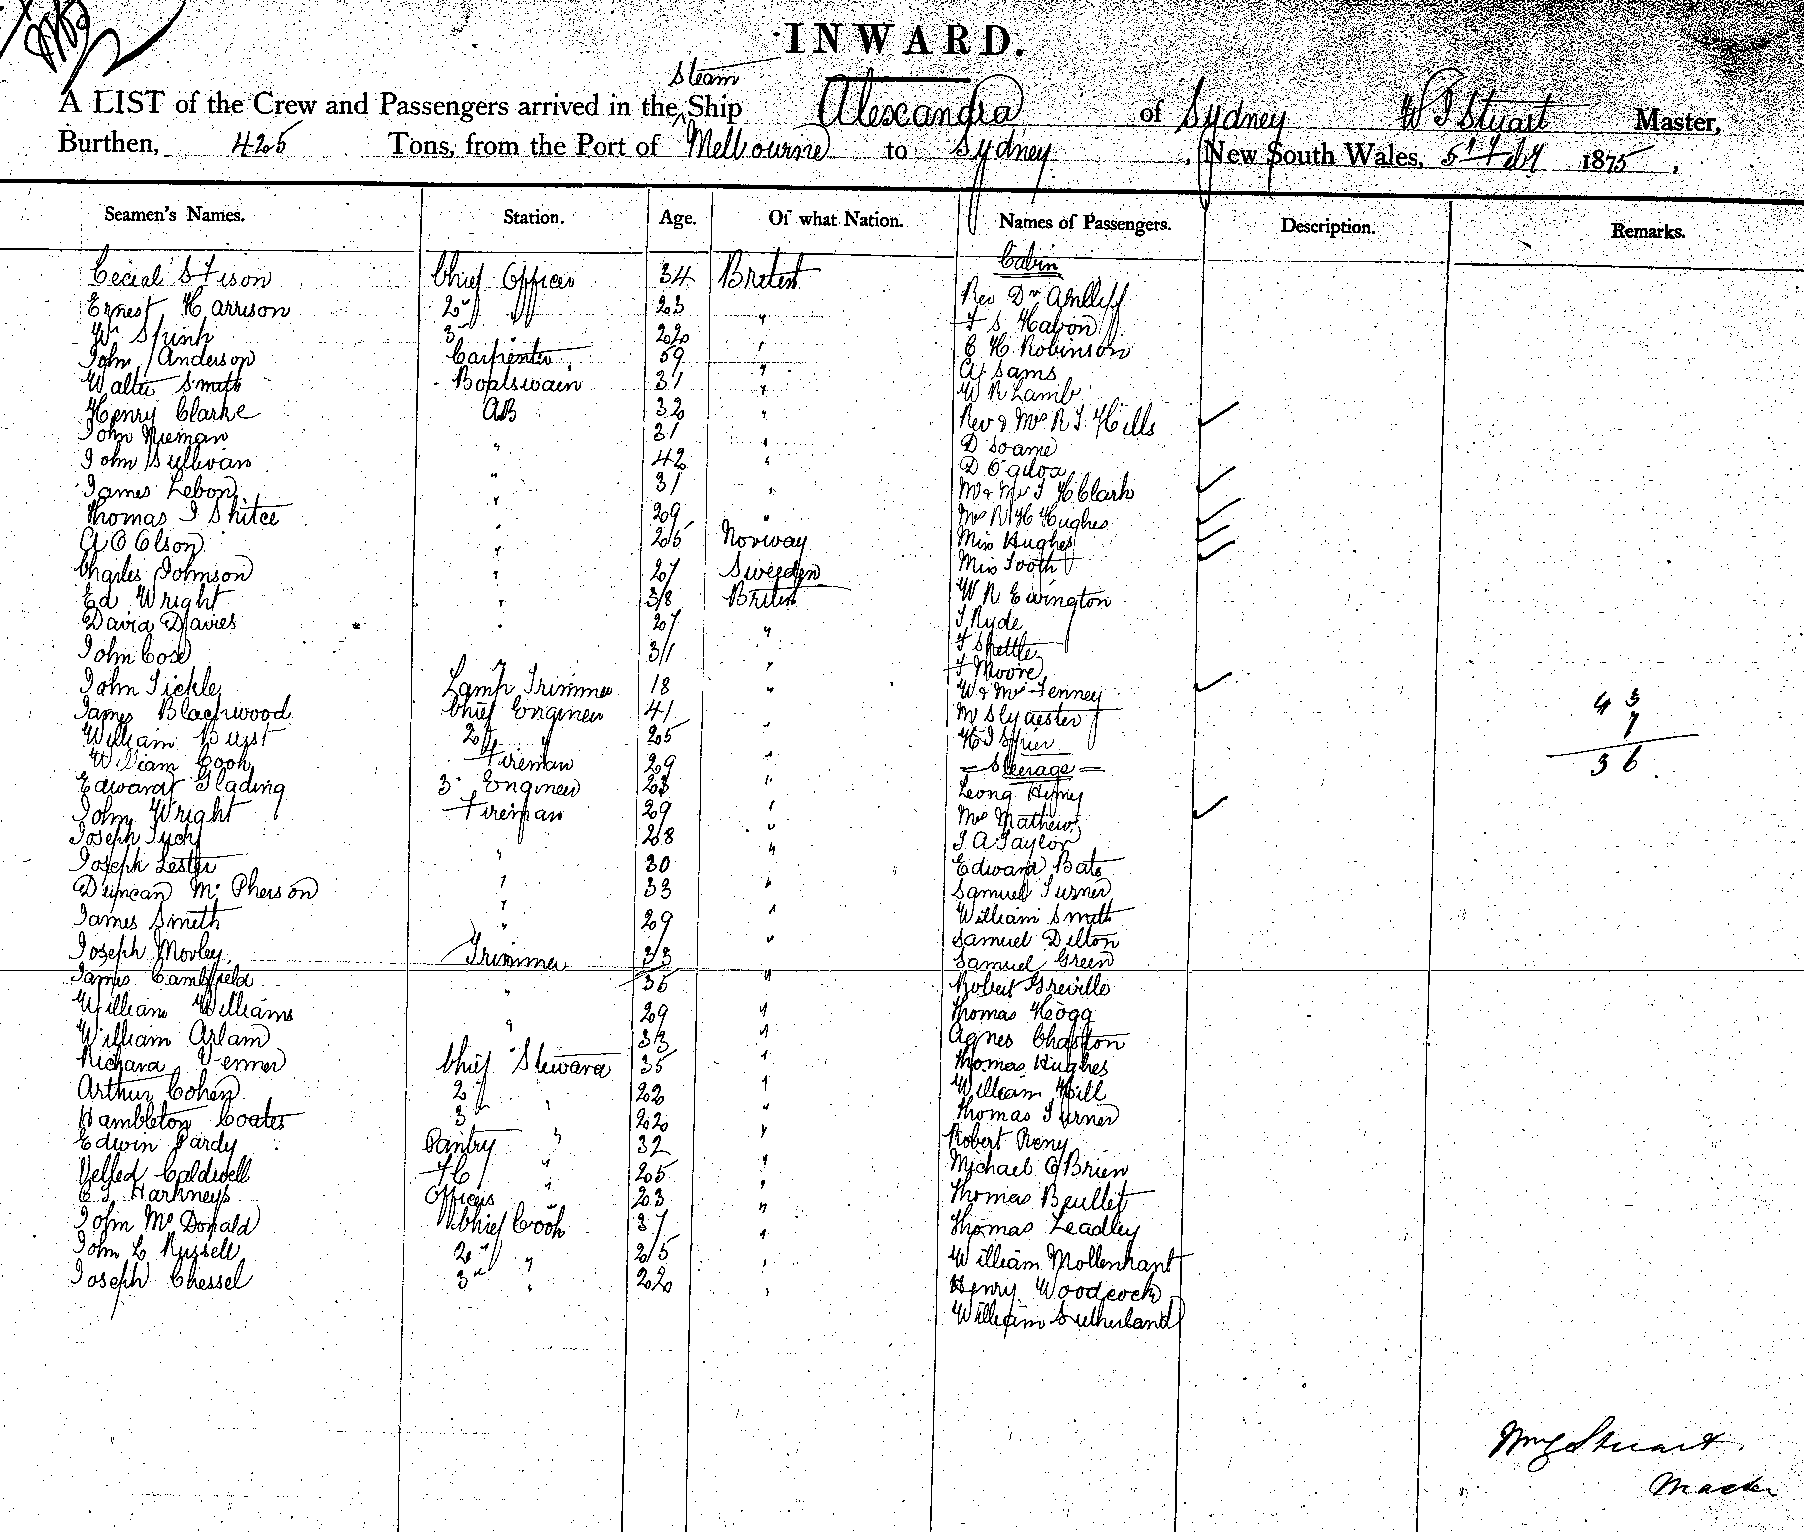 INWARD.
Steam
A LIST of the Crew and Passengers arrived in the Ship Alexandra of Sydney W J Stuart Master,
Burthen, 425 Tons, from the Port of Melbourne to Sydney, New South Wales, 5th Feby 1875.
Seamen's Names. Station. Age. Of what Nation. Names of Passengers. Description. Remarks.
Cabin
Chief Officer 34 British Rev Dr
Ernest Harrison 2nd " 23 "
W Spink 3rd 22 " C H Robinson
John Anderson Carpenter 59 " A Sams
Walter Smith Boatswain 31 " W R Lamb
Henry Clarke AB 32 " Rev & Mrs R J Hills
John Nieman " 31 " D Soame
John Sullivan " 42 "
James Lebon " 31 " Mr & Mrs J H Clark
Thomas J " 29 " Mrs R H Hughes
A O Olson " 25 Norway Miss Hughes
Charles Johnson " 27 Sweden Miss Tooth
Ed Wright " 38 British W R Ewington
David Davies " 27 " J Ryde
John Cose 31 "
" F Moore
John Tickle Lamp Trimmer 18 " W & Mrs Fenney
James Blackwood Chief Engineer 41 " 43
William 2nd " 25 " 7
William Cook Fireman 29 " Steerage 36
Edward Glading 3rd Engineer 28 " Leong
John Wright Fireman 29 " Mrs Mathews
Joseph " 28 " J A Taylor
Joseph Lester " 30 " Edward Bate
Duncan McPherson " 33 " Samuel Turner
James Smith " 29 " William Smith
Joseph Morley Trimmer 33 " Samuel Dilton
Samuel Green
James " 36 " Robert Greville
William Williams " 29 " Thomas Hogg
William Arlam 33 " Agnes Chaston
Richard Venner Chief Steward 35 " Thomas Hughes
Arthur Cohen 2nd " 22 " William Hill
Hambleton Coates 3rd " 22 " Thomas Turner
Edwin Pardy Pantry " 32 " Robert Reny
Caldwell F C " 25 " Michael O'Brien
Harkness Officers " 23 " Thomas
John McDonald Chief Cook 37 " Thomas Leadley
John L Russell 2nd " 25 " William Mollenhant
Joseph Chessel 3rd " 22 " Henry Woodcock
William Sutherland
Wm J Stuart
Master